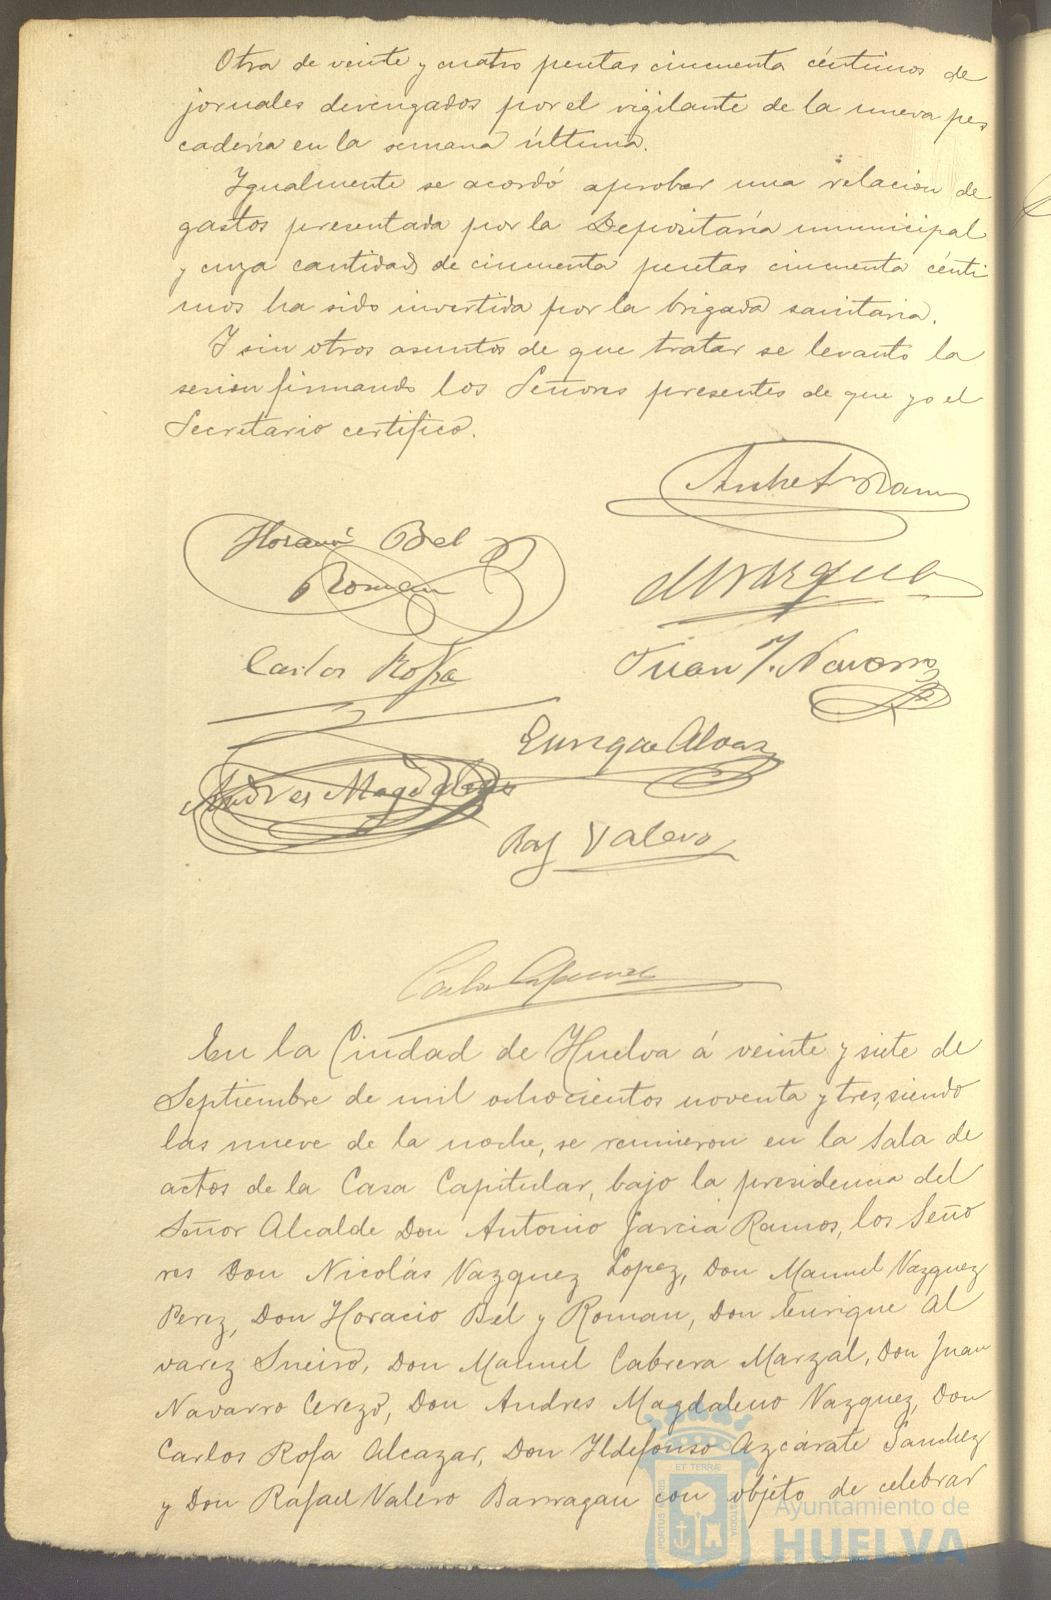 Otra de veinte y cuatro pesetas cincuenta céntimos de
jornales devengados por el vigilante de la nueva pes
cadería en la semana última.
Igualmente se acordó aprobar una relacion de
gastos presentada por la Depositaría municipal
y cuya cantidad de cincuenta pesetas cincuenta cénti
mos ha sido invertida por la brigada sanitaria.
Y sin otros asuntos de que tratar se levantó la
sesion firmando los Señores presentes de que yo el
Secretario certifico.
Horacio Bel
Roman
Carlos Rofa
Juan J. Navarro
Enrique Alvarez
Andres Magdaleno
Raf Valero
En la Ciudad de Huelva á veinte y siete de
Septiembre de mil ochocientos noventa y tres, siendo
las nueve de la noche, se reunieron en la Sala de
actos de la Casa Capitular, bajo la presidencia del
Señor Alcalde Don Antonio Garcia Ramos, los Seño
res Don Nicolás Vazquez Lopez, Don Manuel Vazquez
Perez, Don Horacio Bel y Roman, Don Enrique Al
varez Sneiro, Don Manuel Cabrera Marzal, Don Juan
Navarro Cerezo, Don Andres Magdaleno Vazquez, Don
Carlos Rofa Alcazar, Don Ildefonso Azcárate Sanchez
y Don Rafael Valero Barragan con objeto de celebrar
ET TERRÆ
PORTUS MARIS
CUSTODIA
Ayuntamiento de
HUELVA